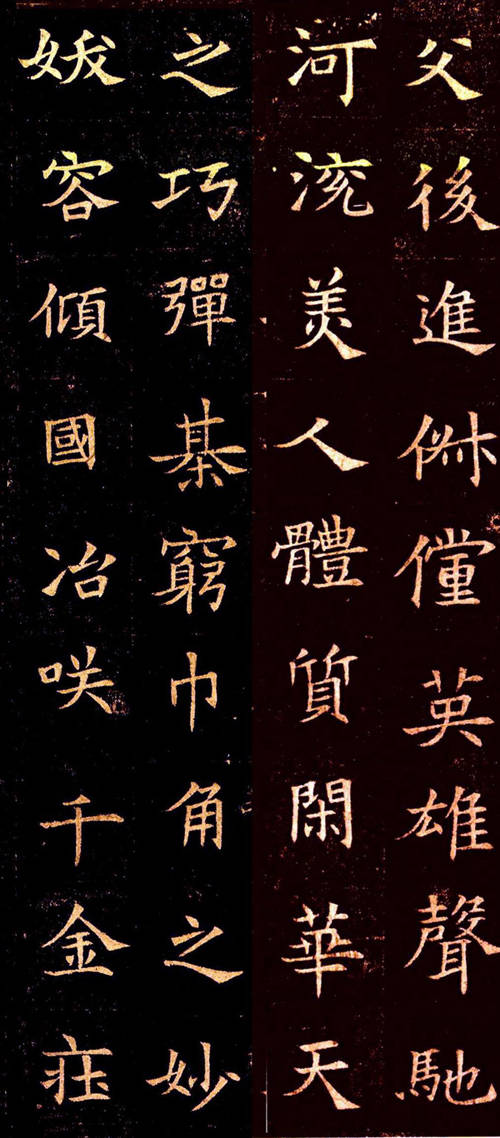 父後進俶儻英雄聲馳
河渷美人體質閑華天
之巧彈棊窮巾角之妙
妭容傾國冶咲千金莊